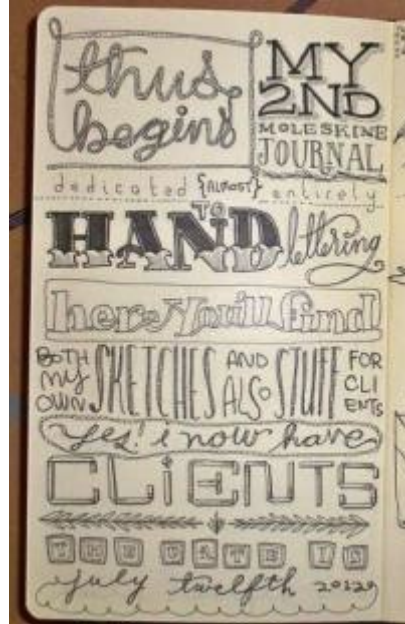 thus
begins
MY
2ND
MOLESKINE
JOURNAL
dedicated {ALMOST} entirely
TO
HAND lettering
here You'll find
BOTH MY OWN SKETCHES AND ALSO STUFF FOR CLIENTS
yes! i now have
CLiENTS
THE DATE IS
july twelfth 2012